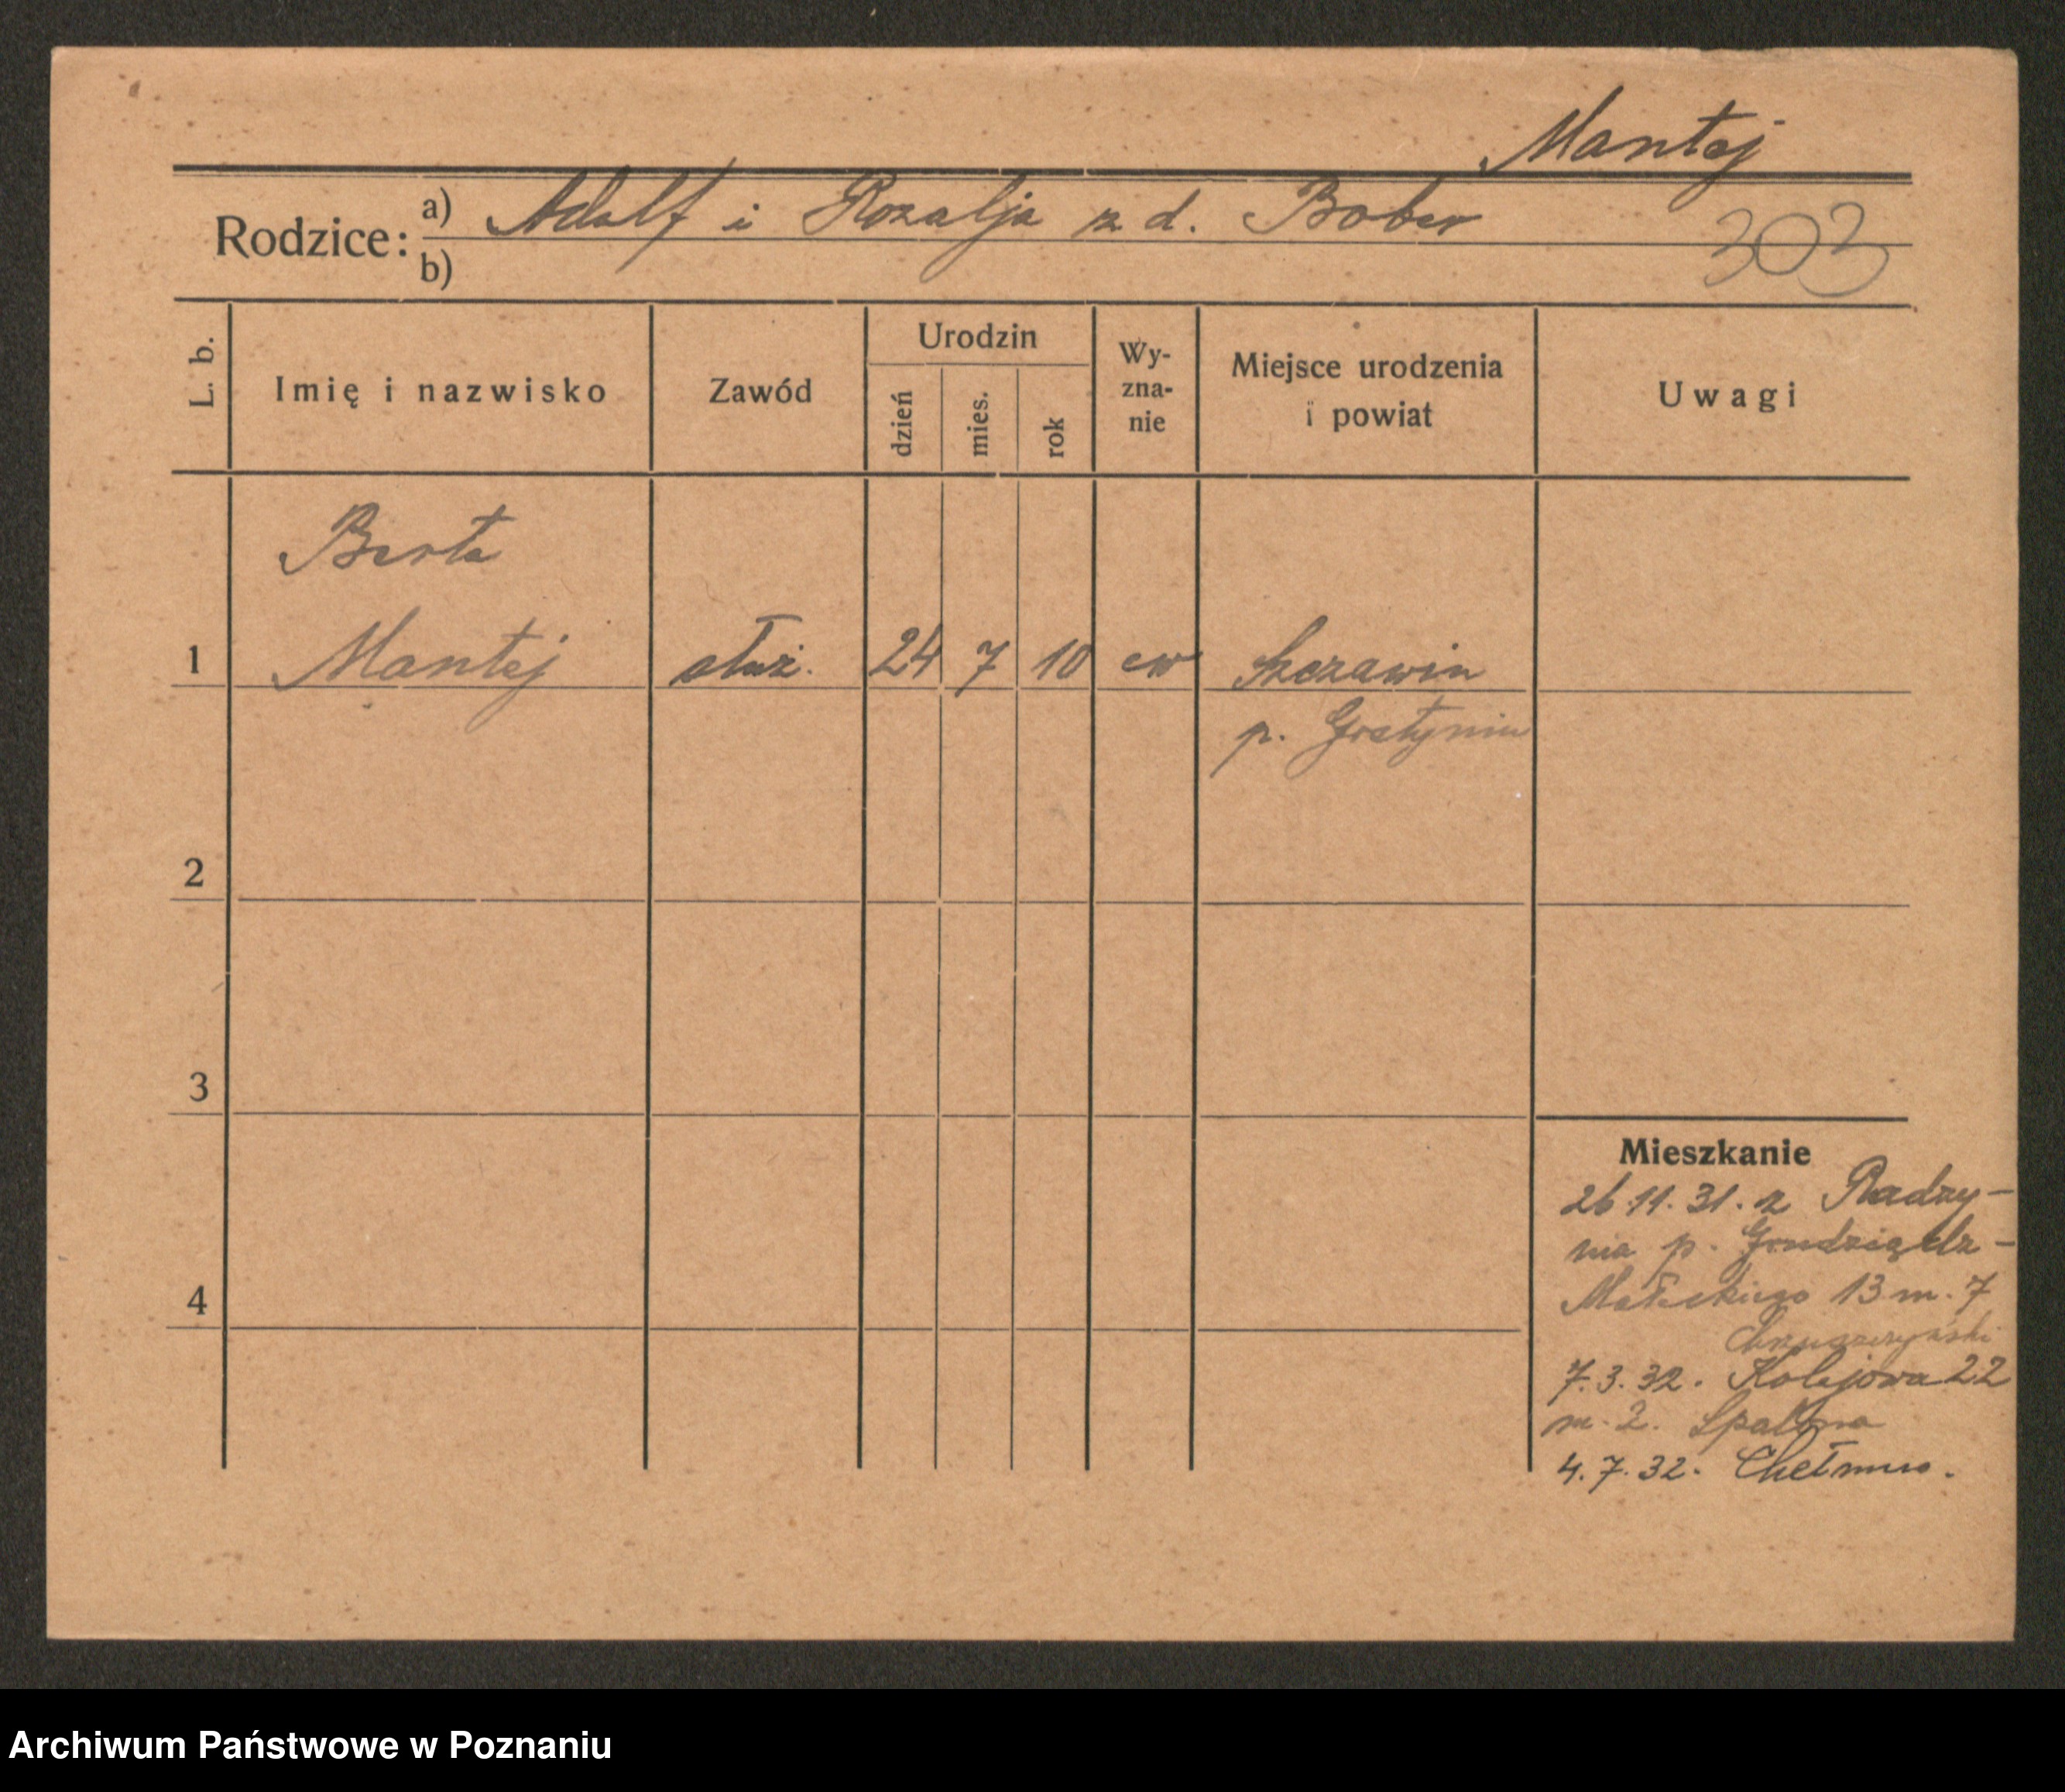 Mantej
Rodzice: a) Adolf i Rozalja z d. Bober
303
b)
L. b. Imię i nazwisko Zawód Urodzin dzień mies. rok Wy-zna-nie Miejsce urodzenia i powiat Uwagi
Berta
1 Mantej służ. 24 7 10 ew Szczawin
p. Gostynin
2
3
Mieszkanie
26.11.31. z Radzy-
nia p. Grudziądz-
Małeckiego 13 m. 7
4
7.3.32. Kolejowa 22
m. 2.
4.7.32. Chełmno.
Archiwum Państwowe w Poznaniu